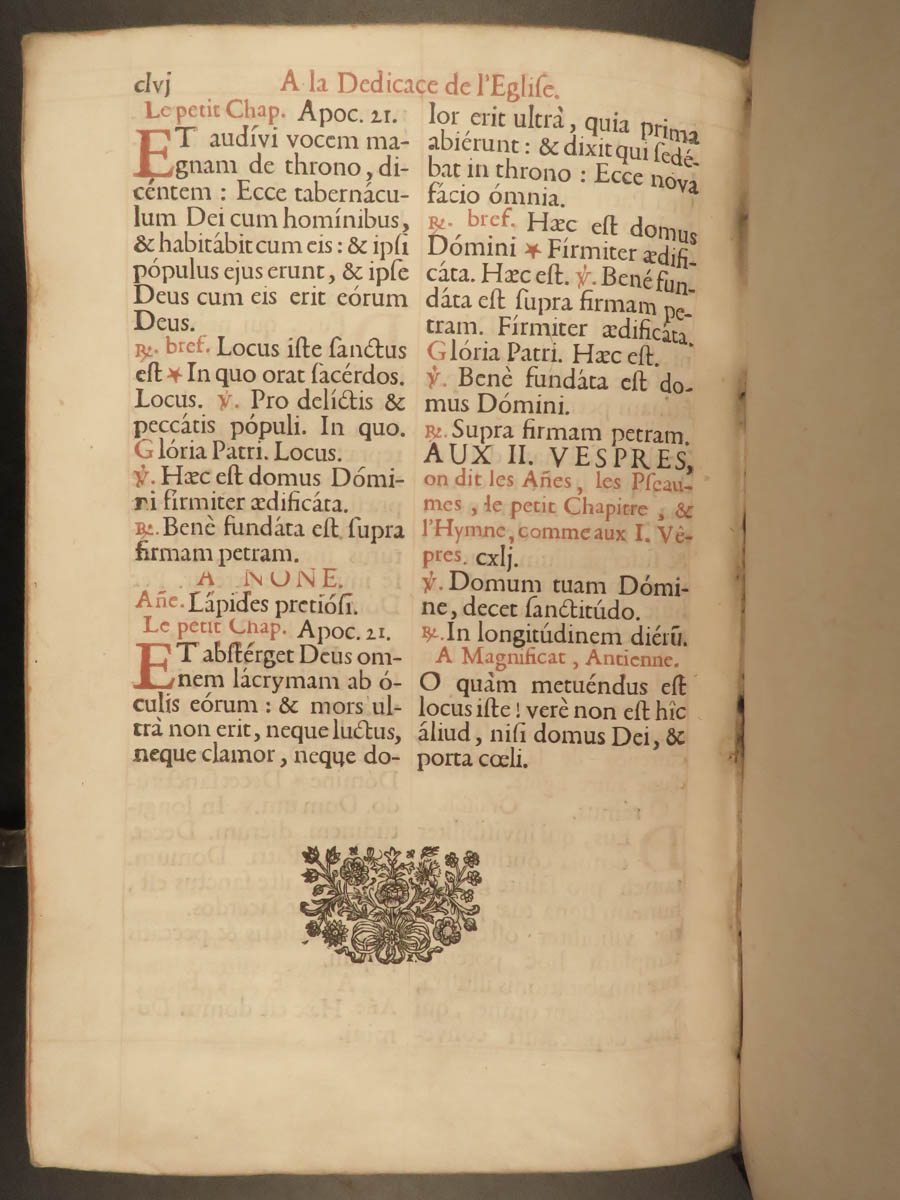 clvj A la Dedicace de l'Egliſe.
Le petit Chap. Apoc. 21.
ET audívi vocem ma-
gnam de throno, di-
céntem : Ecce tabernácu-
lum Dei cum homínibus,
& habitábit cum eis : & ipſi
pópulus ejus erunt, & ipſe
Deus cum eis erit eórum
Deus.
℟. bref. Locus iſte ſanctus
eſt ★ In quo orat ſacérdos.
Locus. ℣. Pro delíctis &
peccátis pópuli. In quo.
Glória Patri. Locus.
℣. Hæc eſt domus Dómi-
ni fírmiter ædificáta.
℟. Benè fundáta eſt ſupra
firmam petram.
A NONE.
Añe. Lápides pretióſi.
Le petit Chap. Apoc. 21.
ET abſtérget Deus om-
nem lácrymam ab ó-
culis eórum : & mors ul-
trà non erit, neque luctus,
neque clamor, neque do-
lor erit ultrà, quia prima
abiérunt : & dixit qui ſedé-
bat in throno : Ecce nova
fácio ómnia.
℟. bref. Hæc eſt domus
Dómini ★ Fírmiter ædifi-
cáta. Hæc eſt. ℣. Benè fun-
dáta eſt ſupra firmam pe-
tram. Fírmiter ædificáta.
Glória Patri. Hæc eſt.
℣. Benè fundáta eſt do-
mus Dómini.
℟. Supra firmam petram.
AUX II. VESPRES,
on dit les Añes, les Pſeau-
mes, le petit Chapitre, &
l'Hymne, comme aux I. Vê-
pres. cxlj.
℣. Domum tuam Dómi-
ne, decet ſanctitúdo.
℟. In longitúdinem diérũ.
A Magnificat, Antienne.
O quàm metuéndus eſt
locus iſte ! verè non eſt hîc
áliud, niſi domus Dei, &
porta cœli.